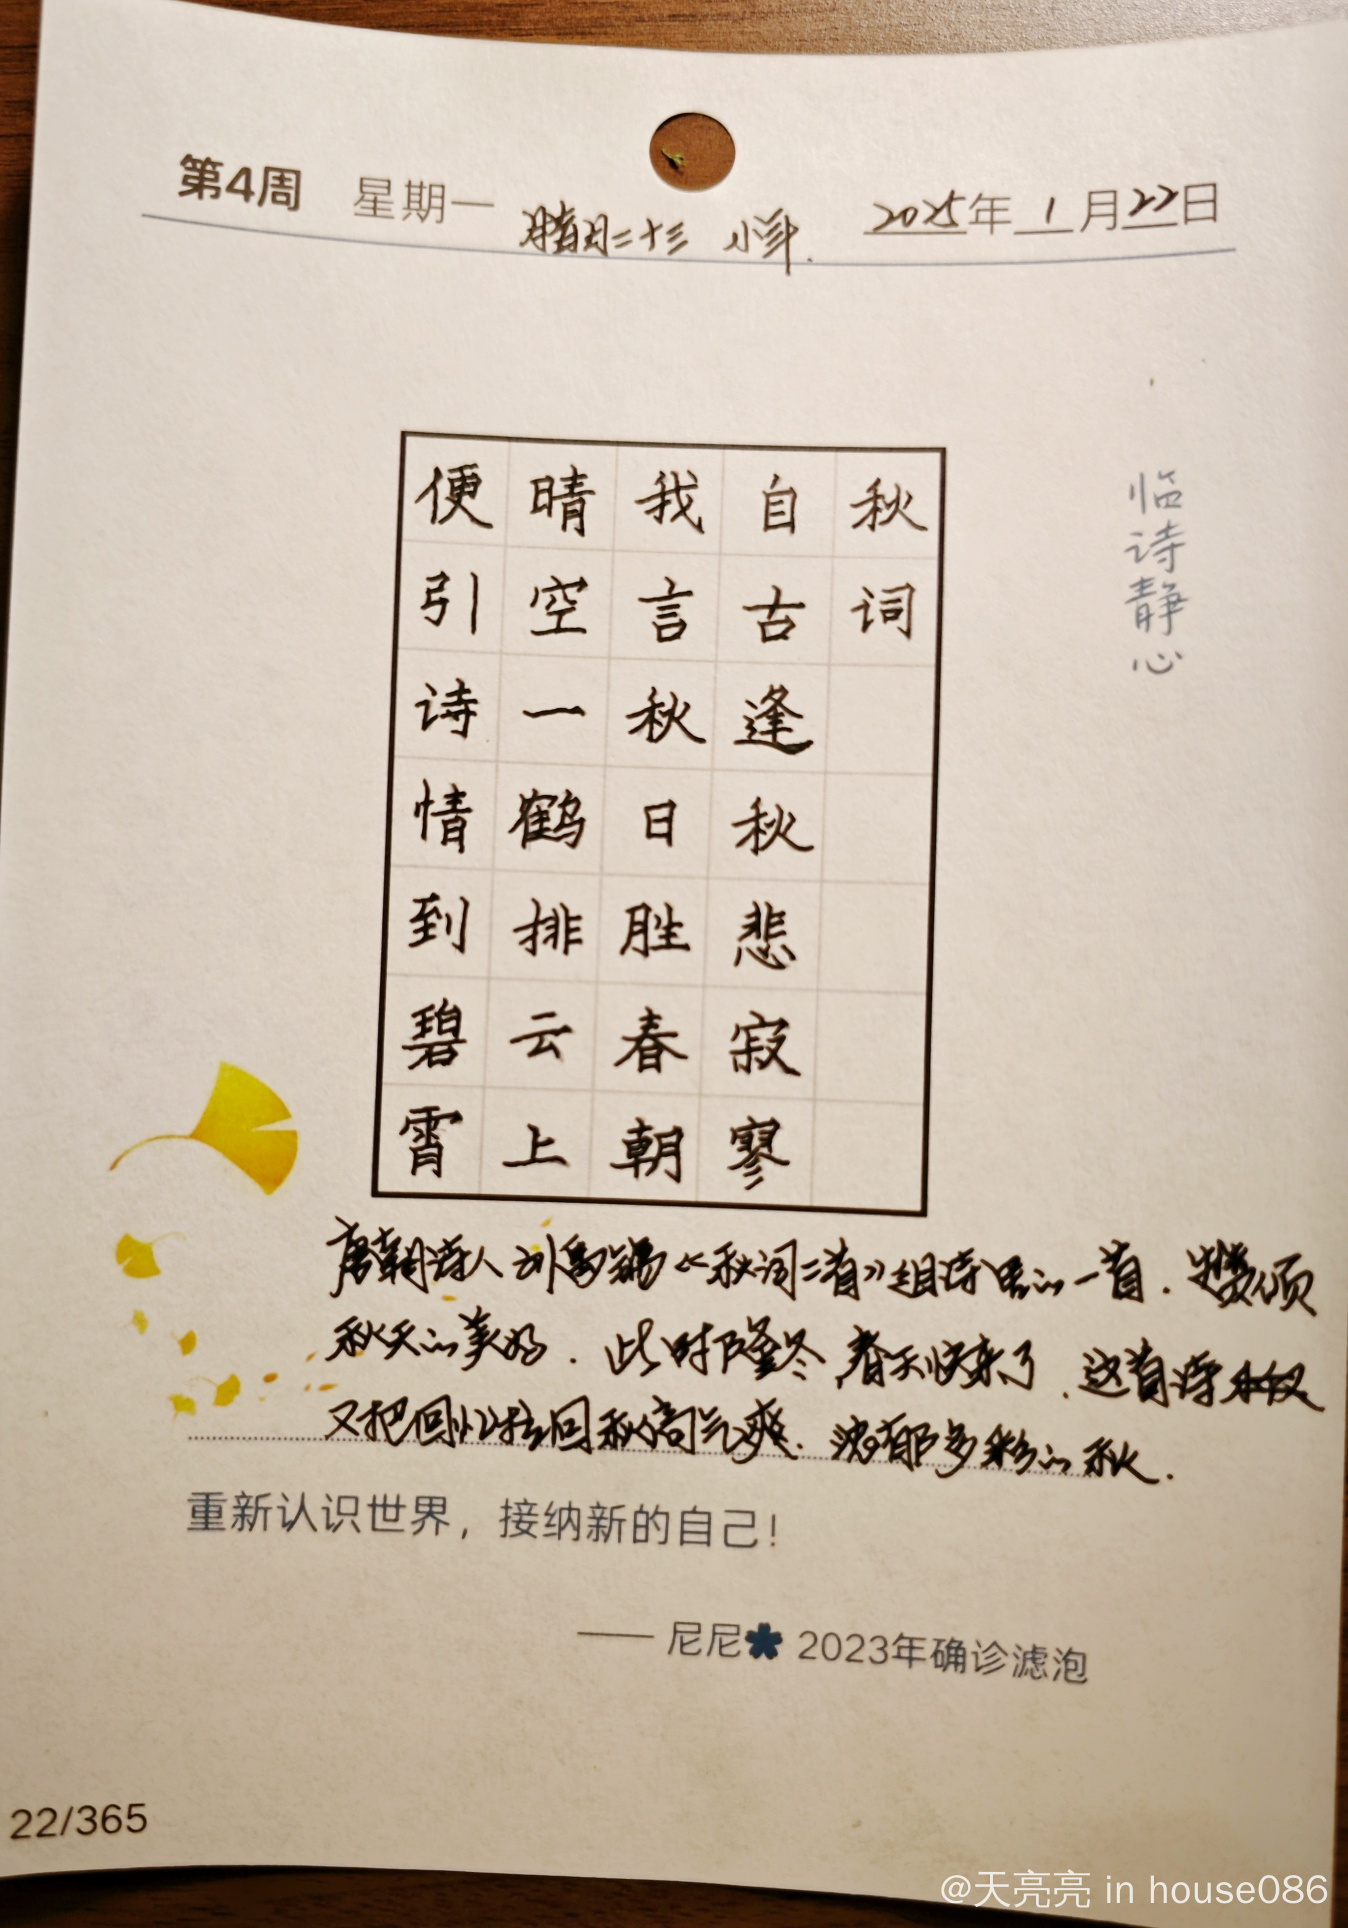 第4周 星期一 腊月二十三 小年. 2025年1月22日
临诗静心
秋词
自古逢秋悲寂寥
我言秋日胜春朝
晴空一鹤排云上
便引诗情到碧霄
唐朝诗人刘禹锡《秋词二首》组诗里的一首.赞颂
秋天的美好.此时隆冬,春天快来了.这首诗
又把回忆拉回秋高气爽.浓郁多彩的秋.
重新认识世界，接纳新的自己！
—— 尼尼 2023年确诊滤泡
22/365
@天亮亮 in house086